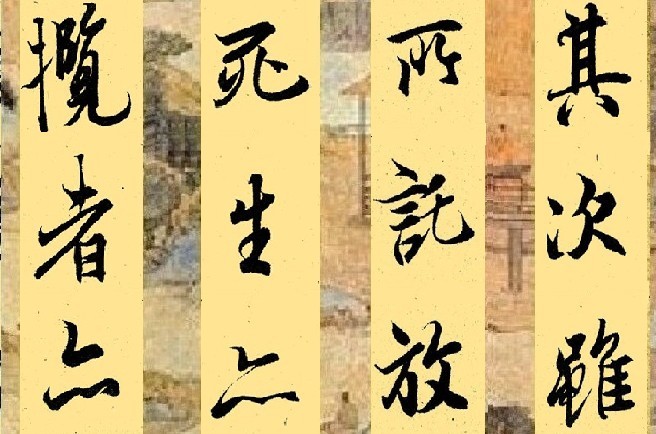 其次雖
所託放
死生亦
攬者亦